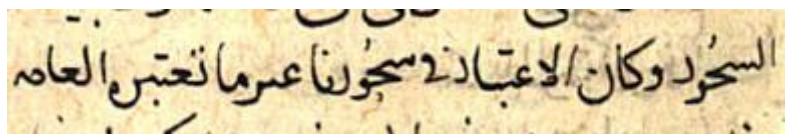 السجود وكان الاعتبار في سجودنا غير ما تعتبره العامه